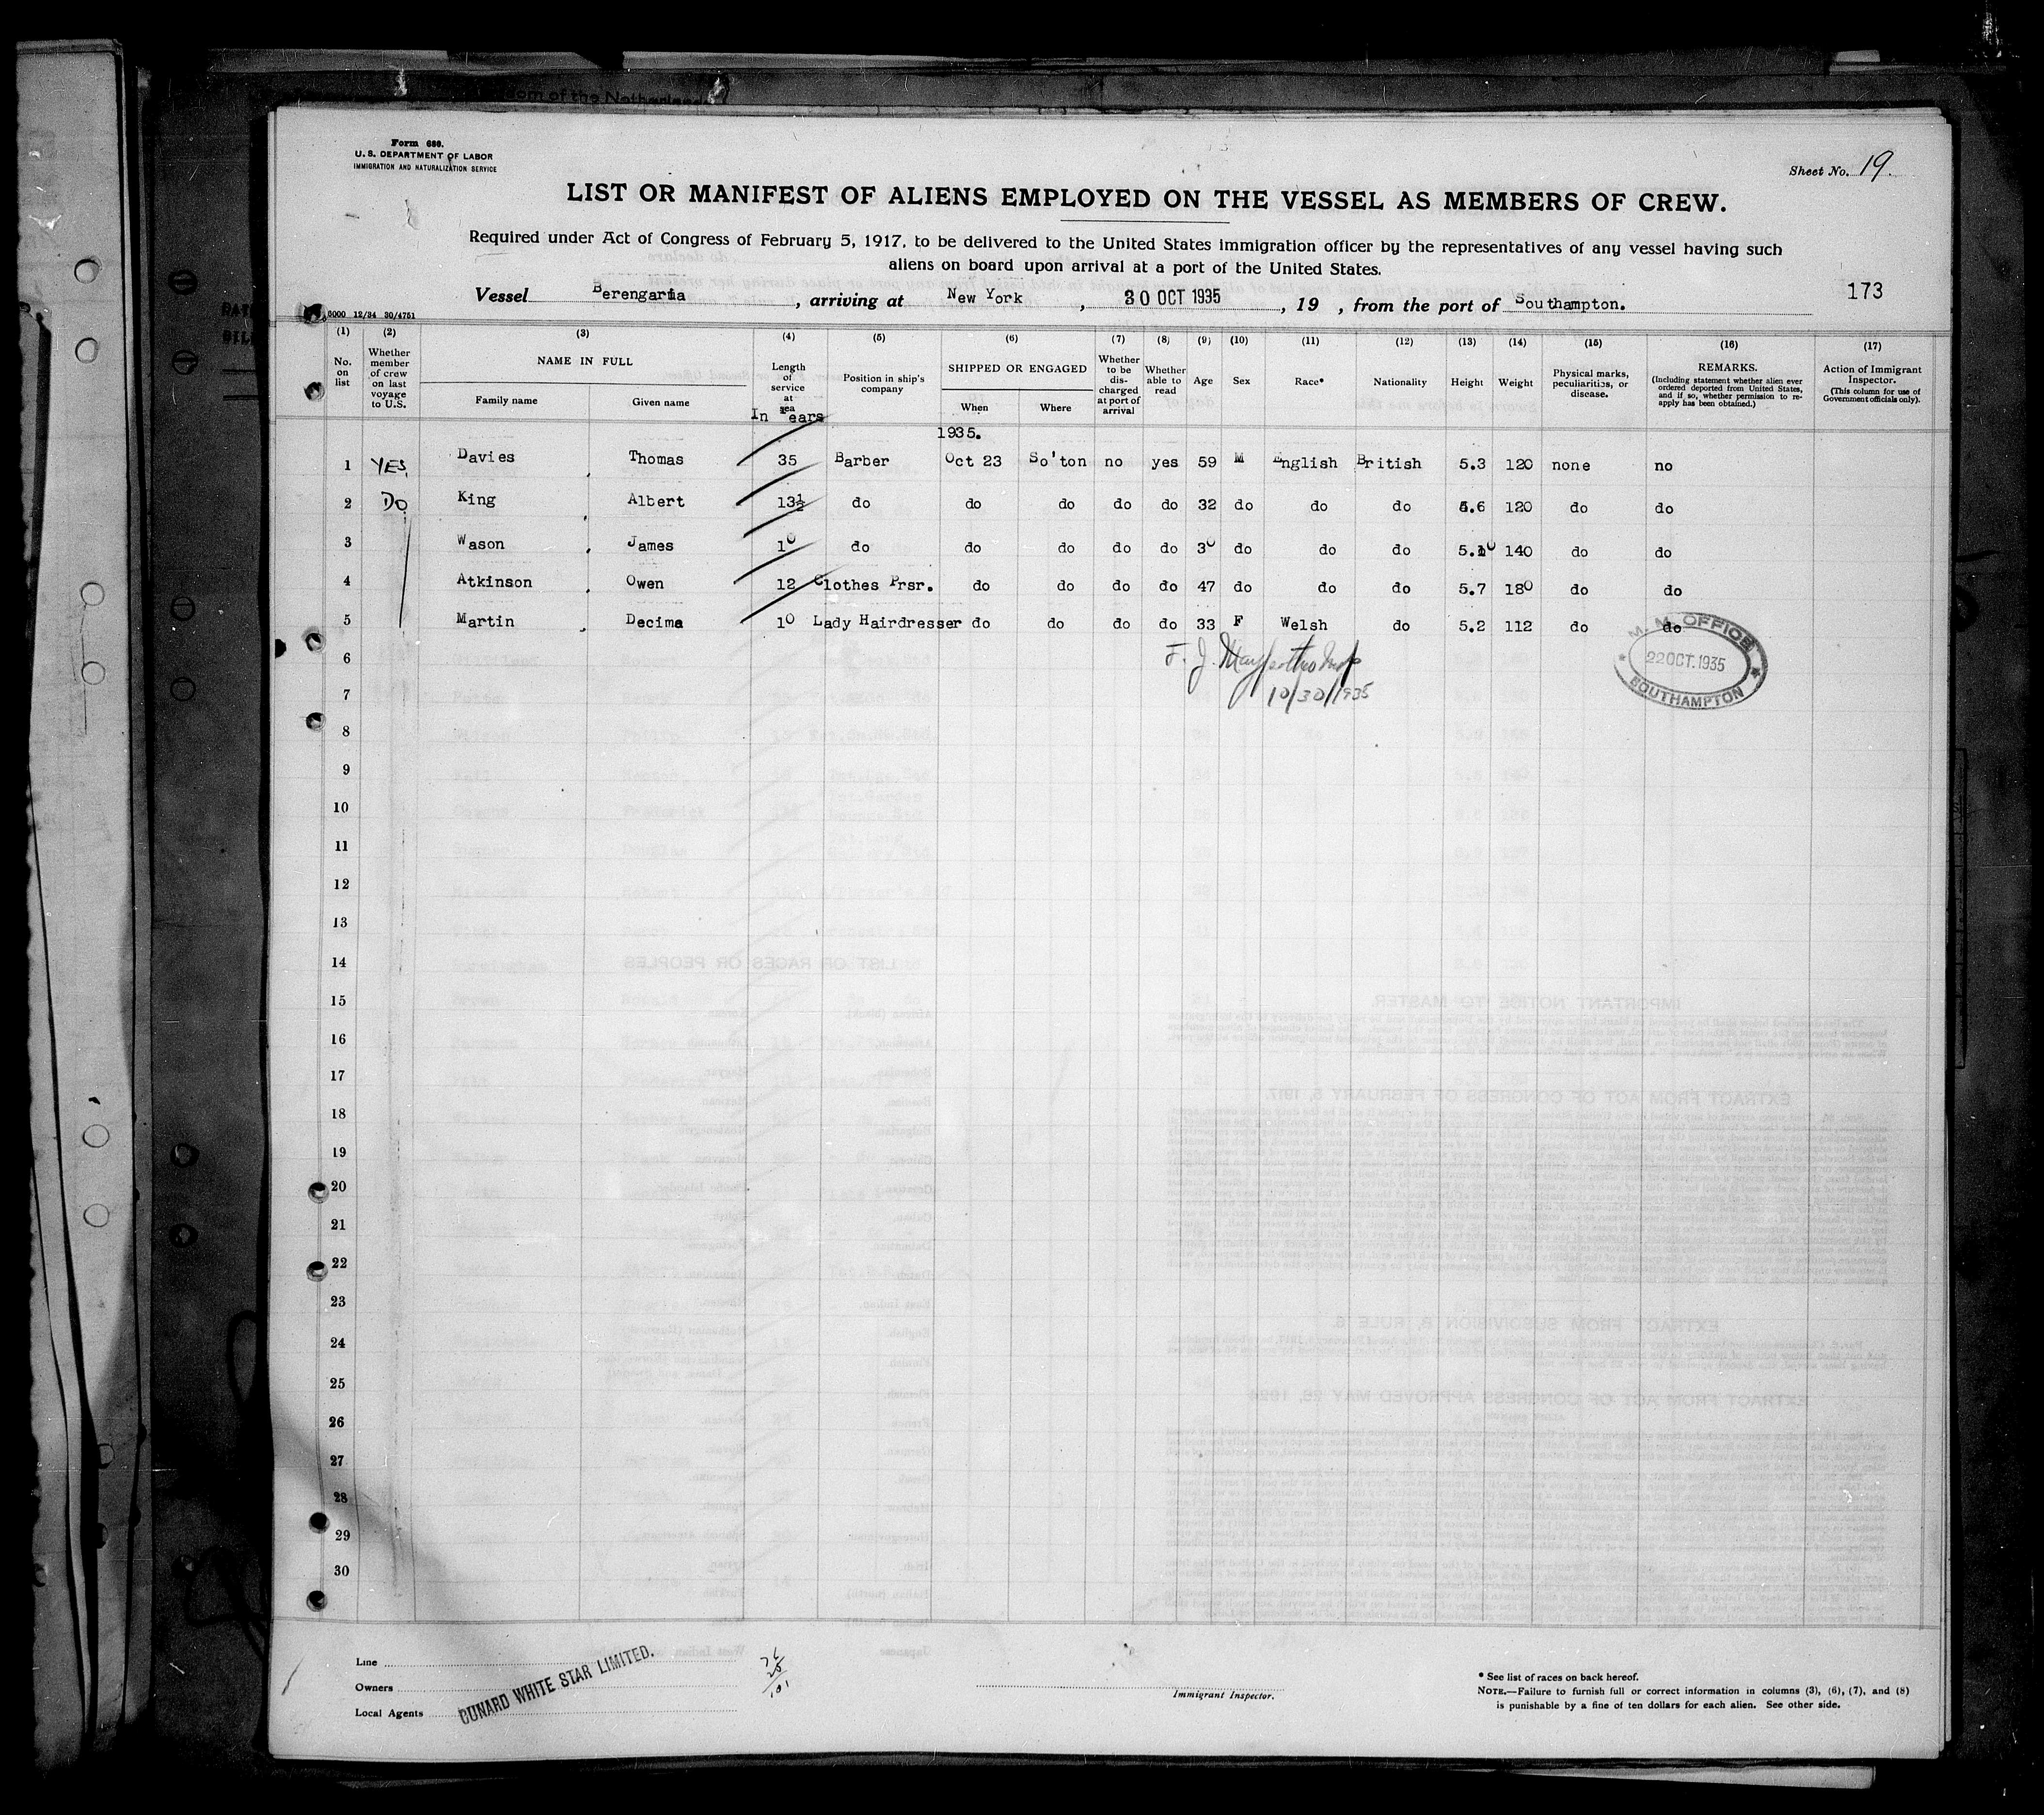 Form 680.
U. S. DEPARTMENT OF LABOR
IMMIGRATION AND NATURALIZATION SERVICE
Sheet No. 19.
LIST OR MANIFEST OF ALIENS EMPLOYED ON THE VESSEL AS MEMBERS OF CREW.
Required under Act of Congress of February 5, 1917, to be delivered to the United States immigration officer by the representatives of any vessel having such
aliens on board upon arrival at a port of the United States.
Vessel Berengaria, arriving at New York, 30 OCT 1935, 19 , from the port of Southampton.
173
5000 12/34 30/4751
(1) (2) (3) (4) (5) (6) (7) (8) (9) (10) (11) (12) (13) (14) (15) (16) (17)
No. on list
Whether member of crew on last voyage to U.S.
NAME IN FULL
Family name
Given name
Length of service at sea
In Years
Position in ship's company
SHIPPED OR ENGAGED
When
Where
Whether to be discharged at port of arrival
Whether able to read
Age
Sex
Race*
Nationality
Height
Weight
Physical marks, peculiarities, or disease.
REMARKS.
(Including statement whether alien ever ordered deported from United States, and if so, whether permission to reapply has been obtained.)
Action of Immigrant Inspector.
(This column for use of Government officials only).
1935.
1 YES Davies Thomas 35 Barber Oct 23 So'ton no yes 59 M English British 5.3 120 none no
2 DO King , Albert 13½ do do do do do 32 do do do 5.6 120 do do
3 Wason , James 10 do do do do do 30 do do do 5.10 140 do do
4 Atkinson , Owen 12 Clothes Prsr. do do do do 47 do do do 5.7 180 do do
5 Martin , Decima 10 Lady Hairdresser do do do do 33 F Welsh do 5.2 112 do do
6
7
10/30/1935
M. M. OFFICE
22 OCT. 1935
SOUTHAMPTON
8
9
10
11
12
13
14
15
16
17
18
19
20
21
22
23
24
25
26
27
28
29
30
Line
Owners
Local Agents
CUNARD WHITE STAR LIMITED.
Immigrant Inspector.
* See list of races on back hereof.
NOTE.—Failure to furnish full or correct information in columns (3), (6), (7), and (8)
is punishable by a fine of ten dollars for each alien. See other side.